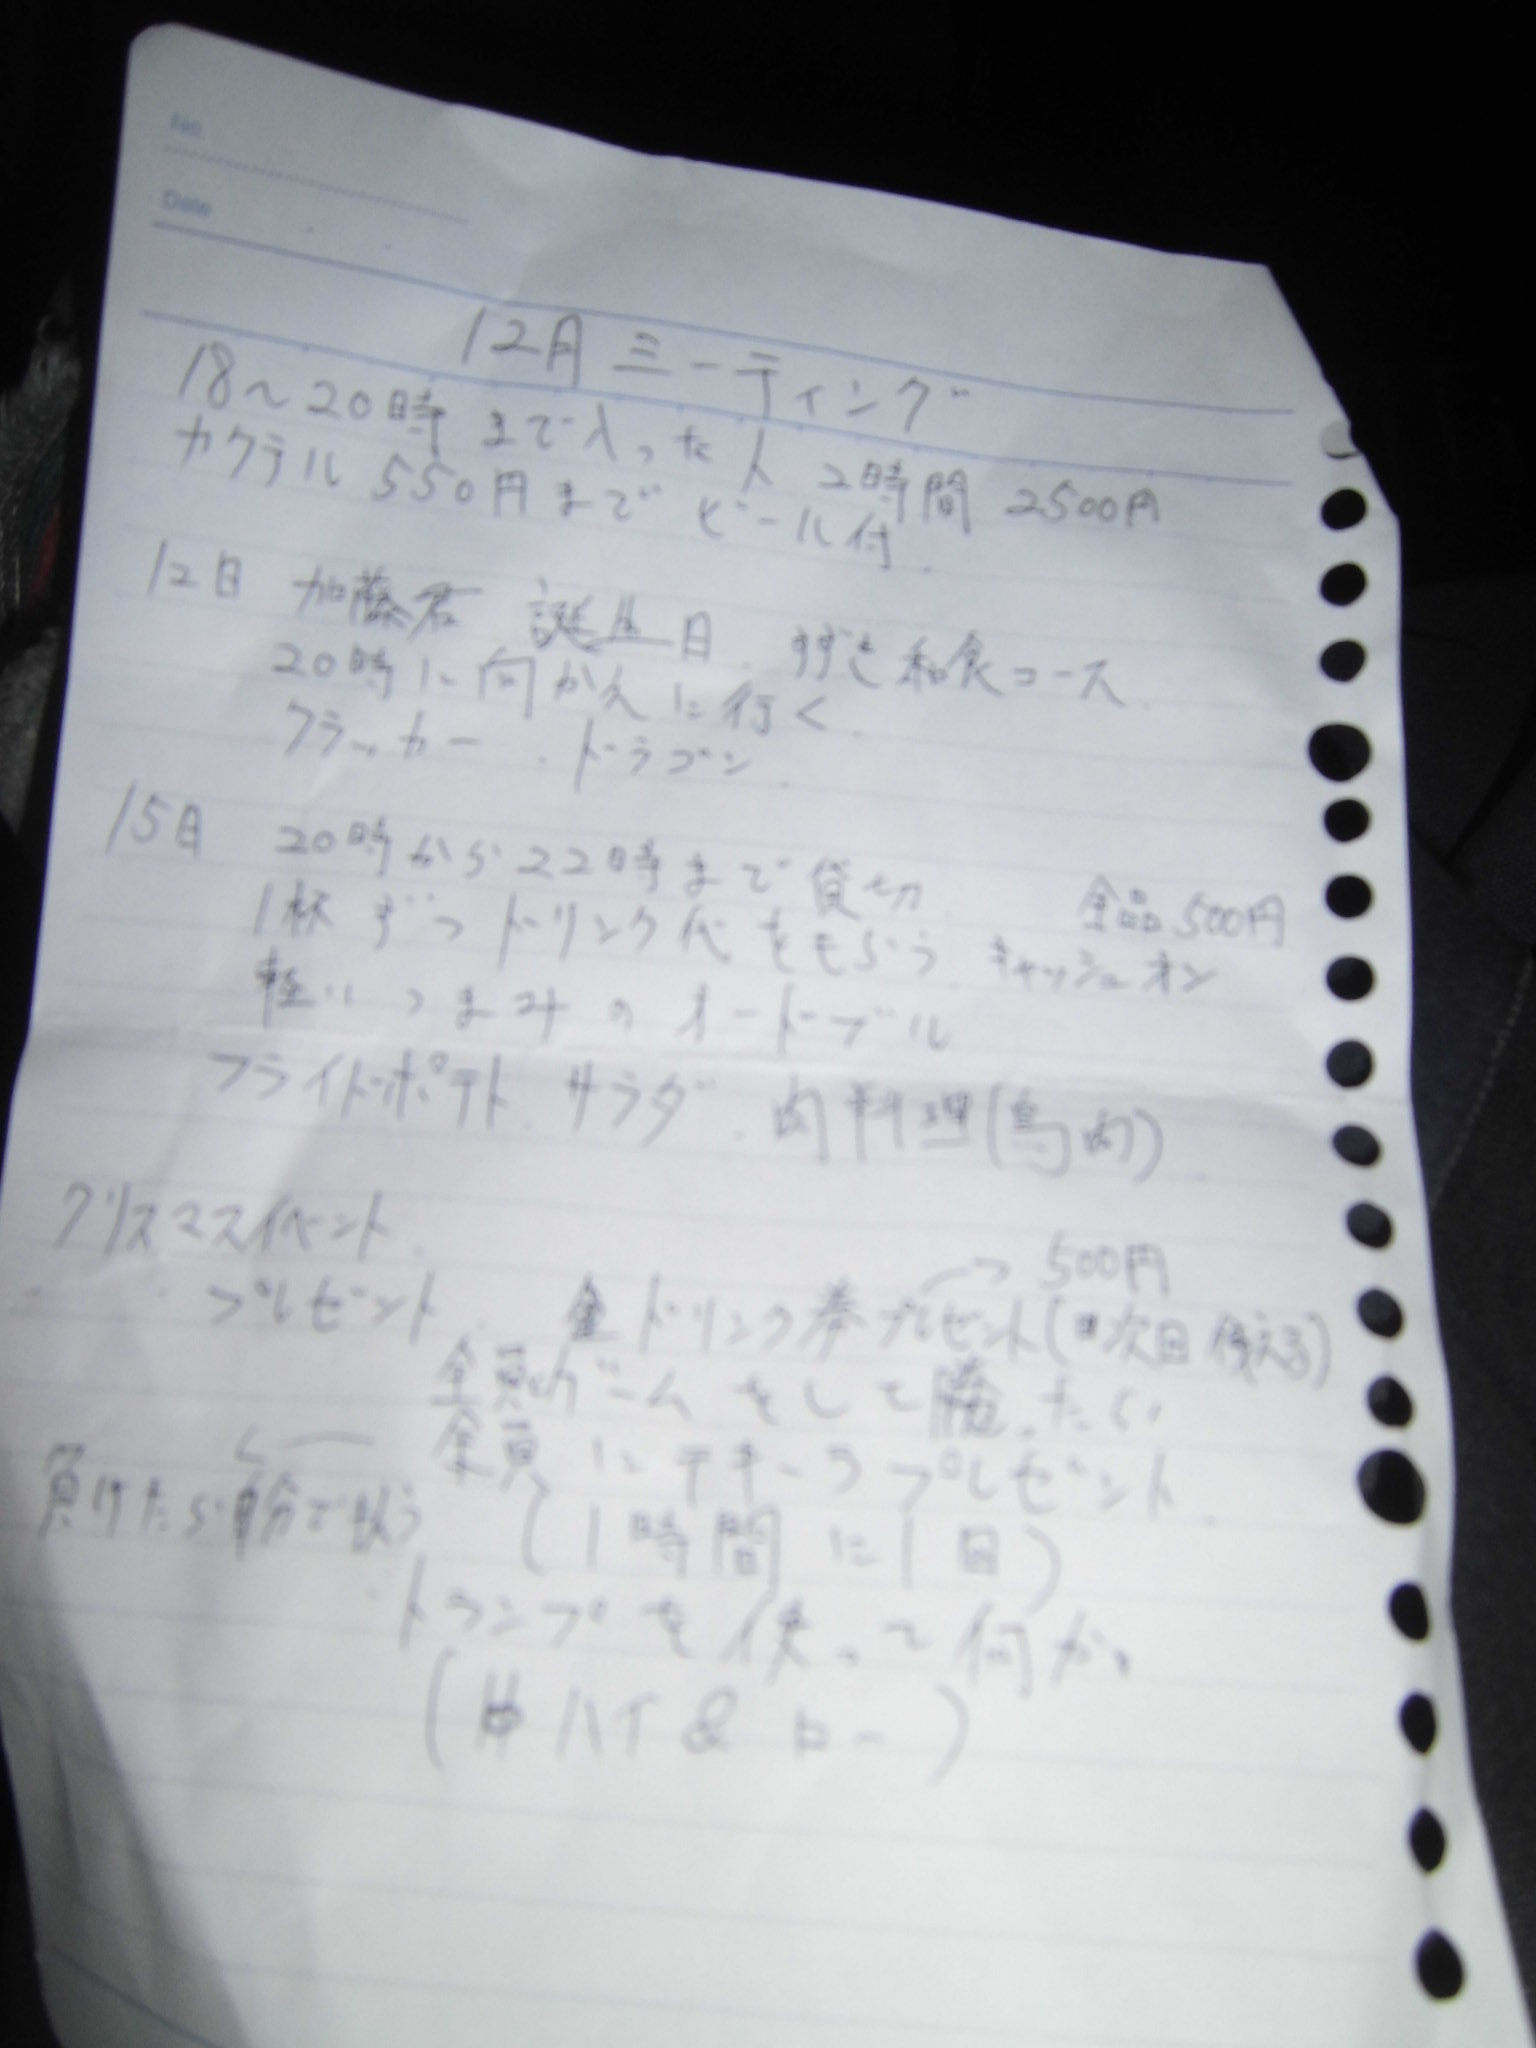 No.
Date
12月 ミーティング
18～20時 まで入った人 2時間 2500円
カクテル 550円まで ビール付.
12日 加藤君 誕生日. すずき 和食コース.
20時に向かえに行く.
クラッカー. ドラゴン.
15日 20時から22時まで貸切
全品500円
1杯ずつドリンク代をもらう. キャッシュオン
軽いつまみのオードブル
フライドポテト. サラダ. 肉料理(鳥肉).
クリスマスイベント.
→ 500円
プレゼント. ドリンク券プレゼント(次回使える)
全員でゲームをして勝ったら
全員にテキーラプレゼント.
負けたら自分で払う (1時間に1回)
トランプを使って何か.
(ハイ&ロー)